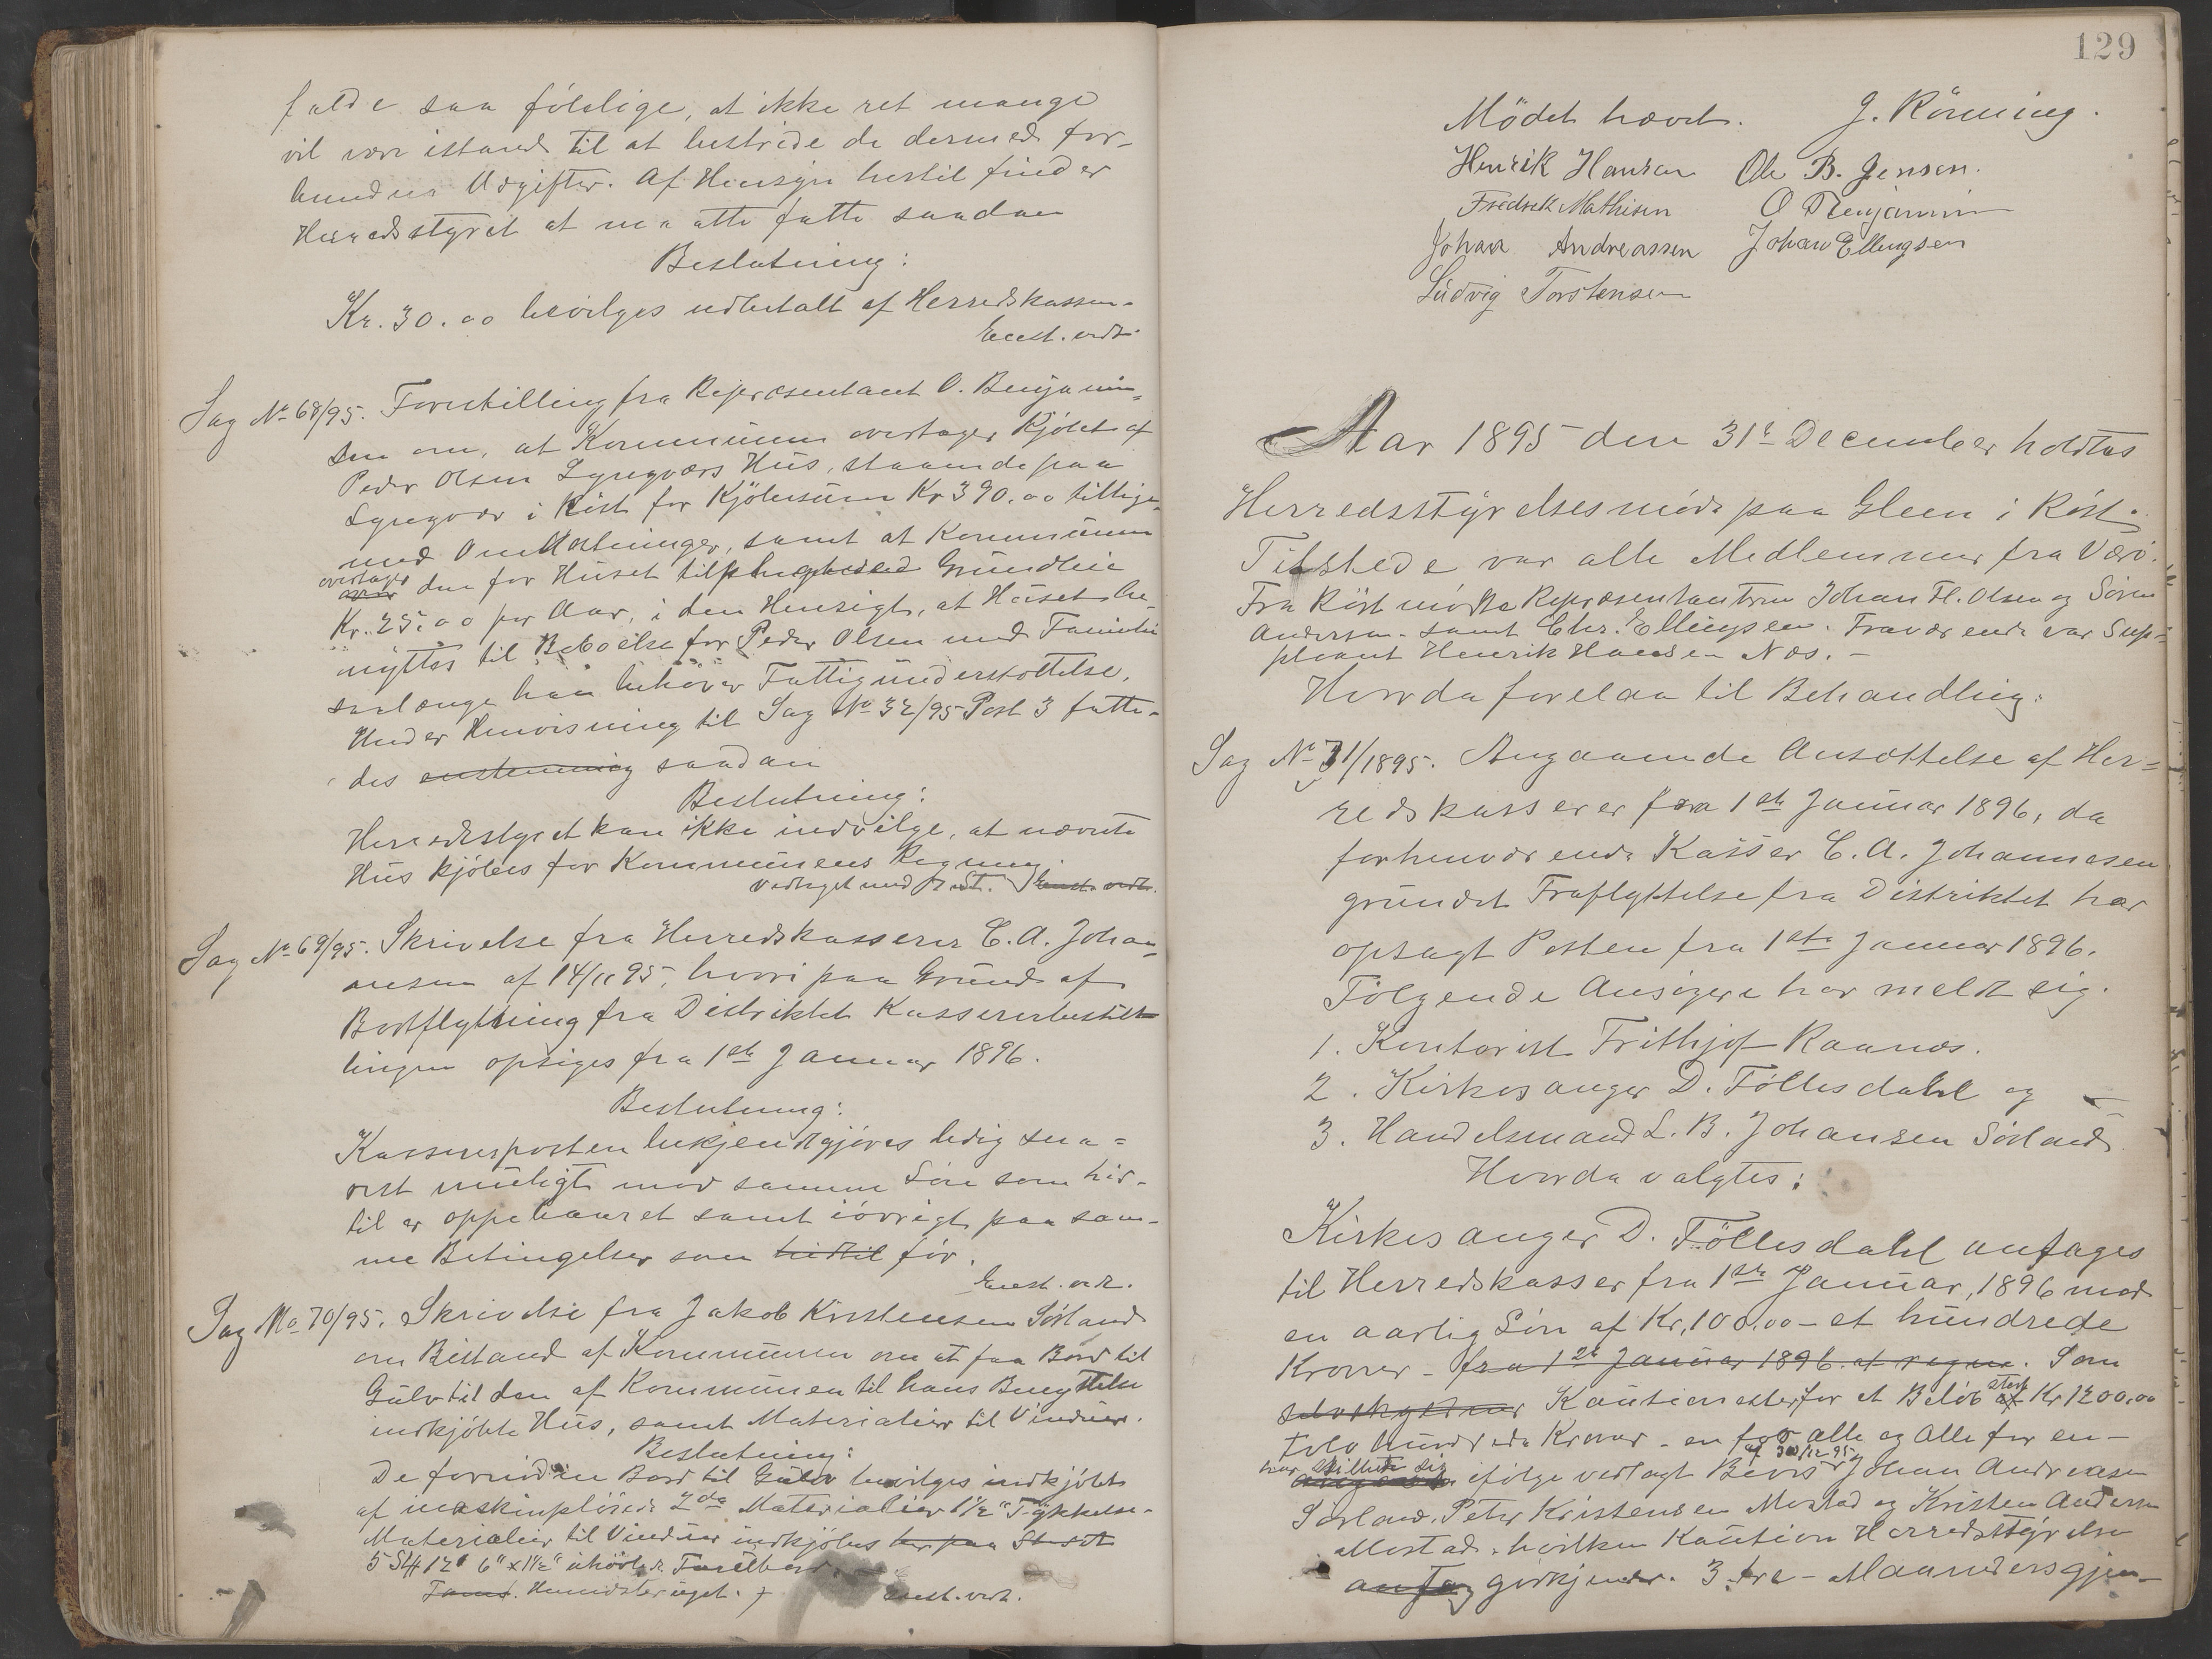 falde saa følelige, at ikke ret mange
vil være istand til at bestride de dermed for-
bundne Udgifter. Af Hensyn hertil finder
Herredsstyret at maatte fatte saadan
Beslutning:
Kr. 30.00 bevilges udbetalt af Herredskassen.
Eenst. vedt.
Sag No 68/95. Forestilling fra Repræsentant O. Benjamin-
sen om, at Kommunen overtager Kjøbet af
Peder Olsen Lyngværs Hus, staaende paa
Lyngvær i Röst for Kjøbesum Kr 390.00 tillige-
med Omkostninger, samt at Kommunen
overtager
den for Huset tilpligtede Grundleie
Kr. 25.00 per Aar, i den Hensigt, at Huset be-
nyttes til Beboelse for Peder Olsen med Familie
saalænge han behøver Fattigunderstøttelse.
Under Henvisning til Sag No 32/95 Post 3 fatte-
des enstemmig saadan
Beslutning:
Herredsstyret kan ikke indvilge, at nævnte
Hus kjøbes for Kommunens Regning.
vedtaget med St. Eenst. vedt.
Sag No 69/95. Skrivelse fra Herredskasserer C. A. Johan-
nesen af 14/11 95, hvori paa Grund af
Bortflytning fra Distriktet Kassererbestil-
lingen opsiges fra 1ste Januar 1896.
Beslutning:
Kassererposten bekjendtgjøres ledig sna-
rest muligt mod samme Løn som hid-
til er oppebaaret samt iøvrigt paa sam-
me Betingelser som hidtil før.
Eenst. vedt.
Sag No 70/95. Skrivelse fra Jakob Kristensen Sörland
om Bistand af Kommunen om at faa Bord til
Gulv til den af Kommunen til hans Benyttelse
indkjøbte Hus, samt Materialier til Vinduer.
Beslutning:
De fornødne Bord til Gulv bevilges indkjøbt
af maskinpløiede 2da Materialier 1½" Tykkelse.
Materialier til Vinduer indkjøbes her paa Stedet
5 Stk 12' 6" x 1½" uhövlede
eenst. vedt.
129
Mödet hævet. J. Rönning.
Henrik Hansen Ole B. Jensen.
Fredrik Mathisen O Benjamin
Johan Andreassen Johan Ellingsen
Ludvig Torstensen
Aar 1895 den 31te December holdtes
Herredsstyrelsesmöde paa Gleen i Röst.
Tilstede var alle Medlemmer fra Værö.
Fra Röst mödte Repræsentanterne Johan Fl. Olsen og Sören
Andersen. samt Chr. Ellingsen. Fraværende var Sup-
pleant Henrik Hansen Næs. -
Hvorda forelaa til Behandling:
Sag No 71/1895. Angaaende Ansættelse af Her-
redskasserer fra 1ste Januar 1896, da
forhenværende Kasser C. A. Johannesen
grundet Fraflyttelse fra Distriktet har
opsagt Posten fra 1ste Januar 1896.
Fölgende Ansögere har meldt sig.
1. Kontorist Frithjof Raanæs.
2. Kirkesanger D. Föllesdahl og
3. Handelsmand L. B. Johansen Sörland
Hvorda valgtes:
Kirkesanger D. Föllesdahl antages
til Herredskasser fra 1ste Januar, 1896 mod
en aarlig Lön af Kr. 100.00 - et hundrede
Kroner - fra 1ste Januar 1896 at regne. Som
selvskyldner Kautionister for et Belöb stort af Kr 1200.00
tolv hundrede Kroner - en for alle og alle for en -
har stillet sig ifölge vedlagt Bevis af 30/12 95 Johan Andreasen
Sörland, Peter Kristensen Mostad og Kristen Andersen
Mostad. hvilken Kaution Herredsstyrelsen
antog godkjender. 3 - tre - Maaneders gjen-